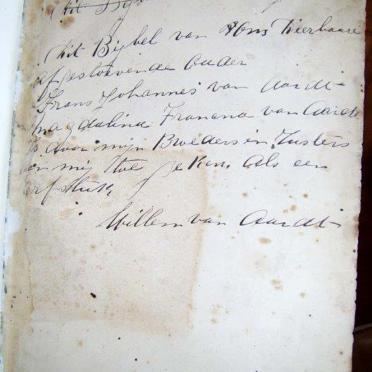 Dit Byb
Dit Bijbel van Ons Dierbaare
afgestorvende Ouder
Frans Johannes van Aardt
Magdalina Francina van Aardt
is door mijn Broeders en Zusters
aan mij toe ge ken Als een
erfstuk
Willem van Aardt